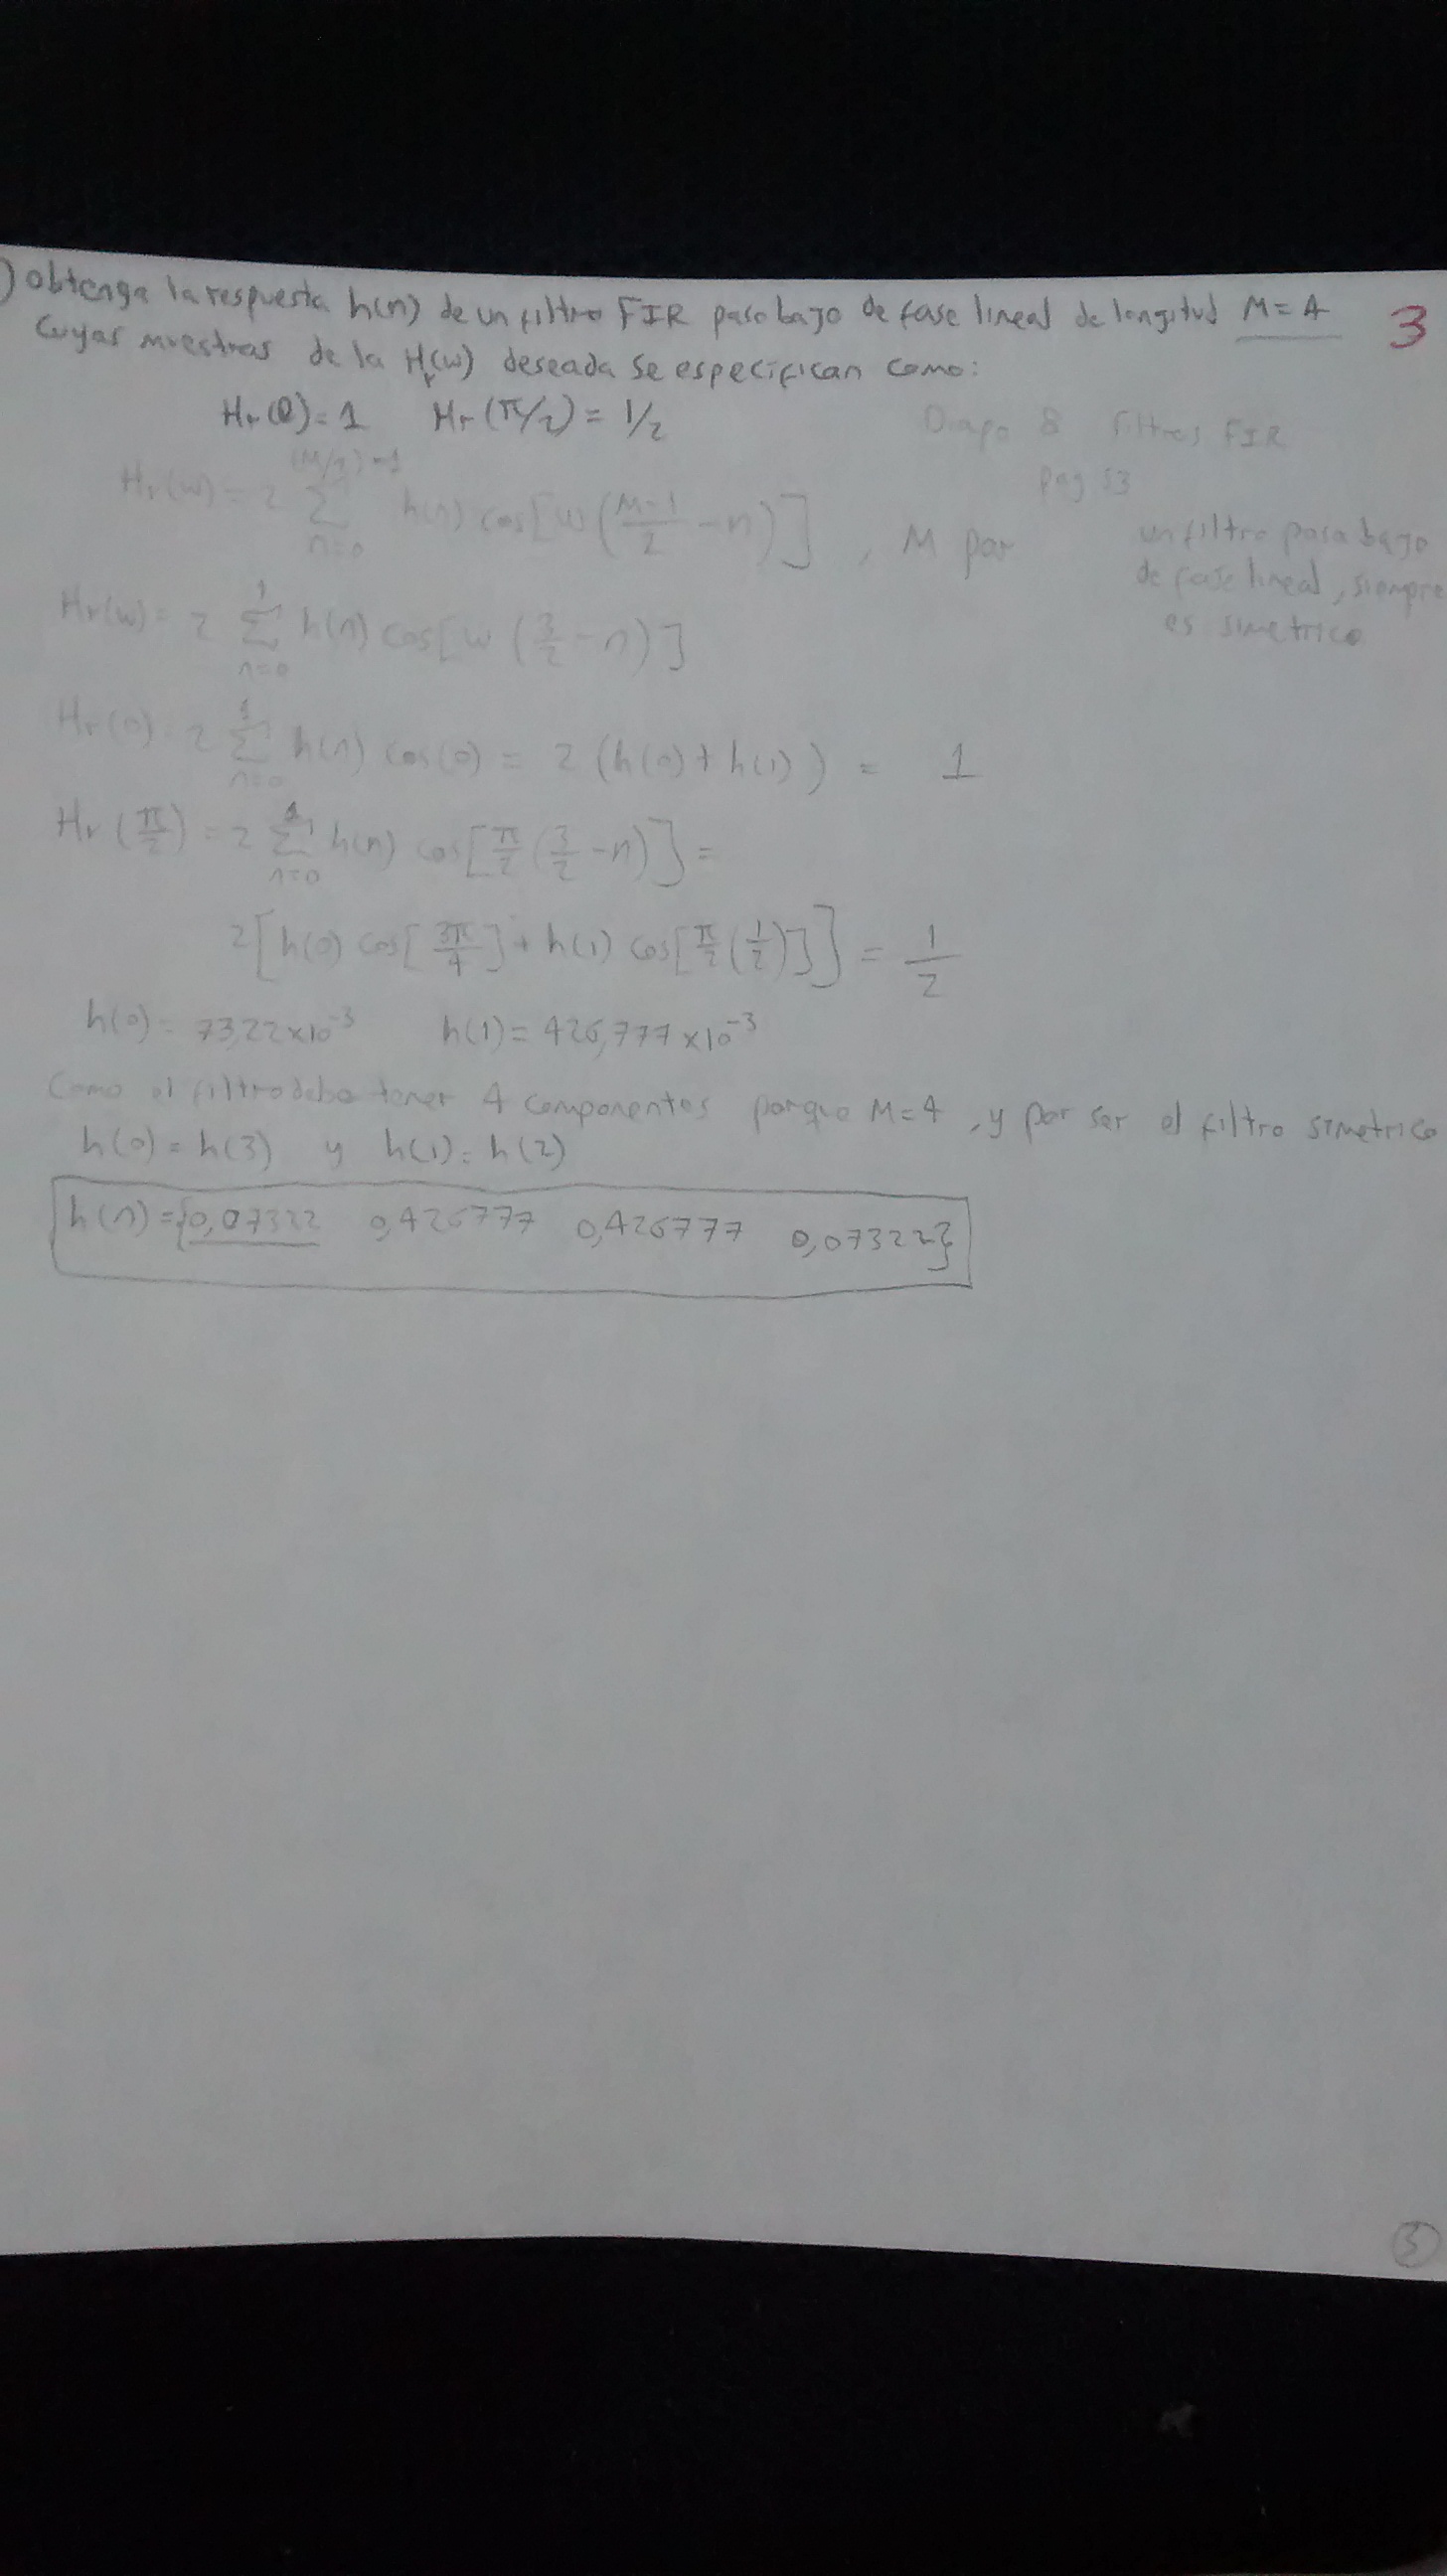 ) obtenga la respuesta h(n) de un filtro FIR paso bajo de fase lineal de longitud M=4 3
cuyas muestras de la Hr(w) deseada se especifican como:
Hr(0)=1 Hr(π/2)=1/2
Diapo 8 Filtros FIR
pag 53
Hr(w) = 2 Σ_{n=0}^{(M/2)-1} h(n) cos[w((M-1)/2 - n)] , M par
un filtro pasa bajo
de fase lineal, siempre
es simetrico
Hr(w) = 2 Σ_{n=0}^{1} h(n) cos[w(3/2 - n)]
Hr(0) = 2 Σ_{n=0}^{1} h(n) cos(0) = 2 (h(0) + h(1)) = 1
Hr(π/2) = 2 Σ_{n=0}^{1} h(n) cos[π/2 (3/2 - n)] =
2[h(0) cos[3π/4] + h(1) cos[π/2 (1/2)]] = 1/2
h(0) = 73,22x10^-3 h(1) = 426,777x10^-3
Como el filtro debe tener 4 componentes porque M=4 , y por ser el filtro simetrico
h(0) = h(3) y h(1) = h(2)
h(n) = {0,07322 0,426777 0,426777 0,07322}
5